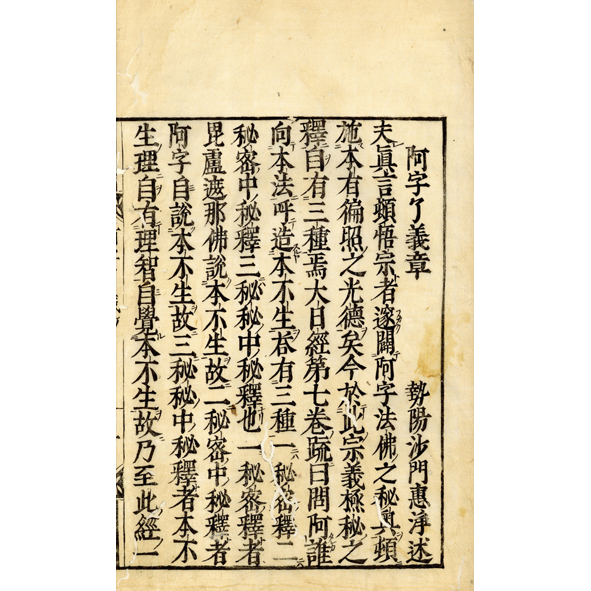 阿字了義章　勢陽沙門惠淨述
夫眞言頓悟宗者邃闢阿字法佛之秘奥頓
施本有徧照之光德矣今於此宗義極秘之
釋自有三種焉大日經第七卷疏曰問阿誰
向本法呼造本不生答有三種一秘密釋二
秘密中秘釋三秘秘中秘釋也一秘密釋者
毘盧遮那佛說本不生故二秘密中秘釋者
阿字自說本不生故三秘秘中秘釋者本不
生理自有理智自覺本不生故乃至此經一